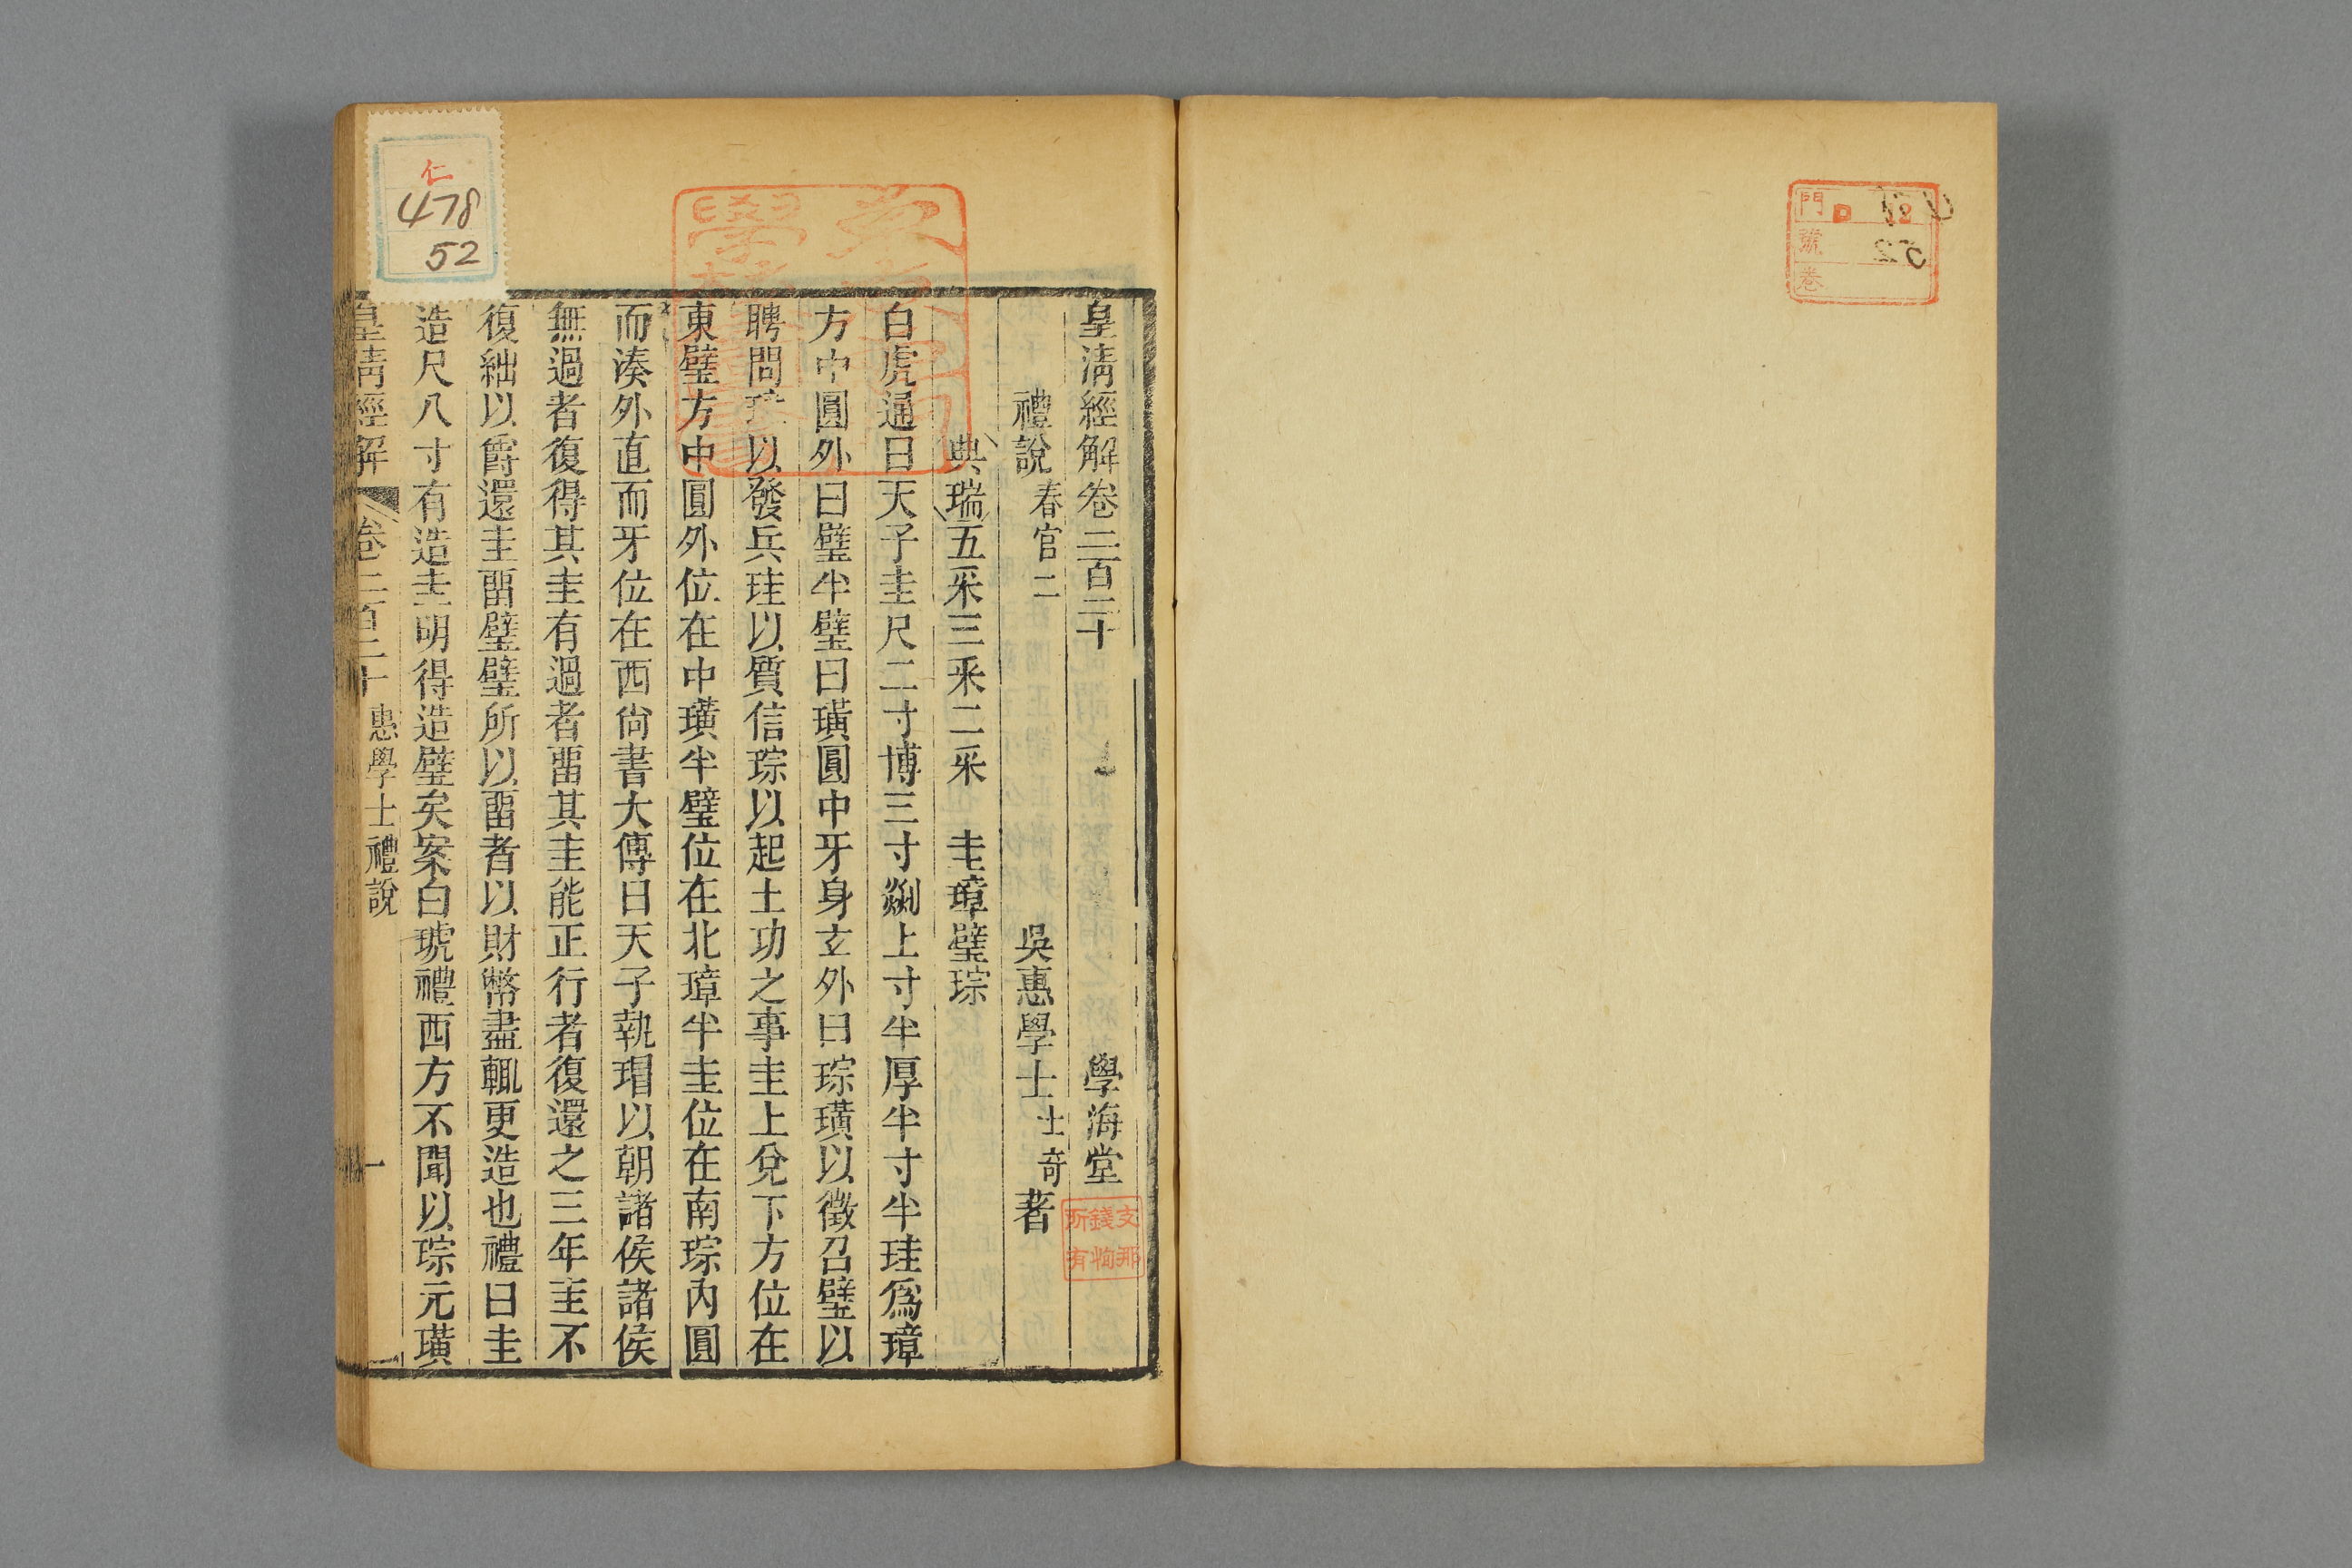 皇清經解卷二百二十 學海堂
禮說春官二 吳惠學士士奇著
典瑞五采三采二采 圭璋璧琮
白虎通曰天子圭尺二寸博三寸剡上寸半厚半寸半珪爲璋
方中圓外曰璧半璧曰璜圓中牙身玄外曰琮璜以徵召璧以
聘問璋以發兵珪以質信琮以起土功之事圭上兌下方位在
東璧方中圓外位在中璜半璧位在北璋半圭位在南琮內圓
而湊外直而牙位在西尙書大傳曰天子執瑁以朝諸侯諸侯
無過者復得其圭有過者畱其圭能正行者復還之三年圭不
復絀以爵還圭畱璧璧所以畱者以財幣盡輒更造也禮曰圭
造尺八寸有造圭明得造璧矣案白琥禮西方不聞以琮元璜
皇清經解 卷二百二十 惠學士禮說 一
仁
478
52
支那
錢恂
所有
門 D 12
號
卷